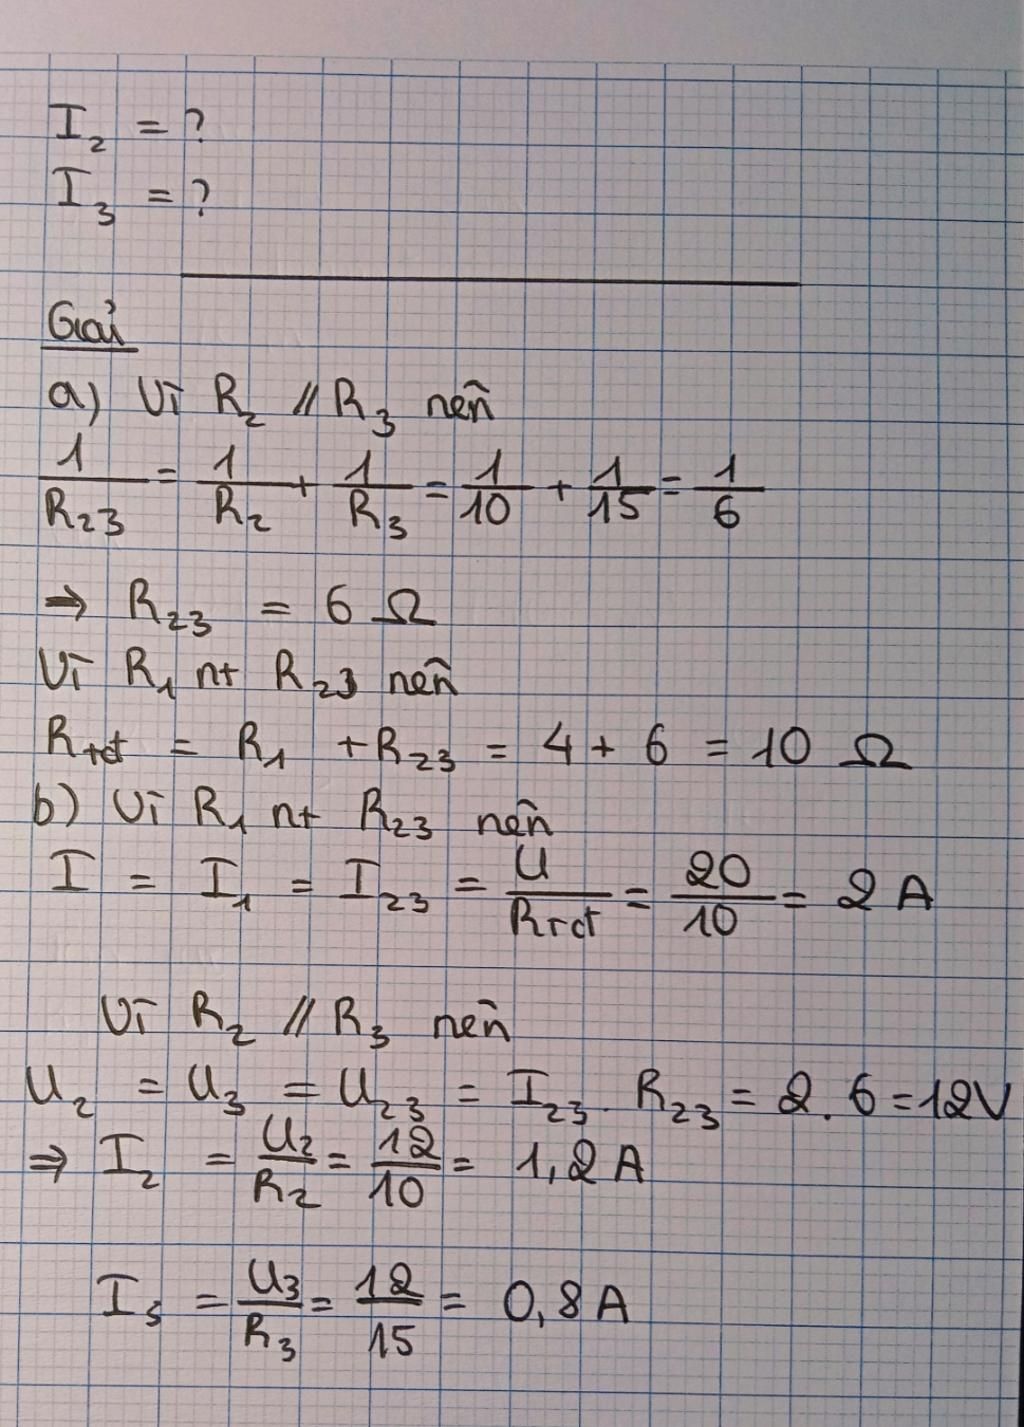 I₂ = ?
I₃ = ?
Giải
a) Vì R₂ // R₃ nên
1/R₂₃ = 1/R₂ + 1/R₃ = 1/10 + 1/15 = 1/6
⇒ R₂₃ = 6 Ω
Vì R₁ nt R₂₃ nên
Rtđ = R₁ + R₂₃ = 4 + 6 = 10 Ω
b) Vì R₁ nt R₂₃ nên
I = I₁ = I₂₃ = U/Rtđ = 20/10 = 2 A
Vì R₂ // R₃ nên
U₂ = U₃ = U₂₃ = I₂₃ . R₂₃ = 2 . 6 = 12V
⇒ I₂ = U₂/R₂ = 12/10 = 1,2 A
I₃ = U₃/R₃ = 12/15 = 0,8 A